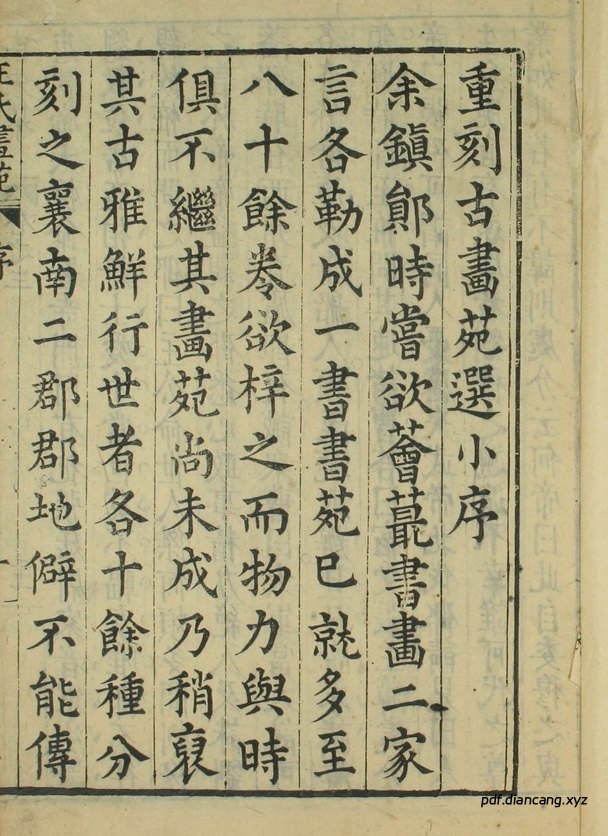 重刻古畫苑選小序
余鎮鄖時嘗欲薈蕞書畫二家
言各勒成一書書苑已就多至
八十餘卷欲梓之而物力與時
俱不繼其畫苑尚未成乃稍裒
其古雅鮮行世者各十餘種分
刻之襄南二郡郡地僻不能傳
王氏畫苑 序
pdf.diancang.xyz